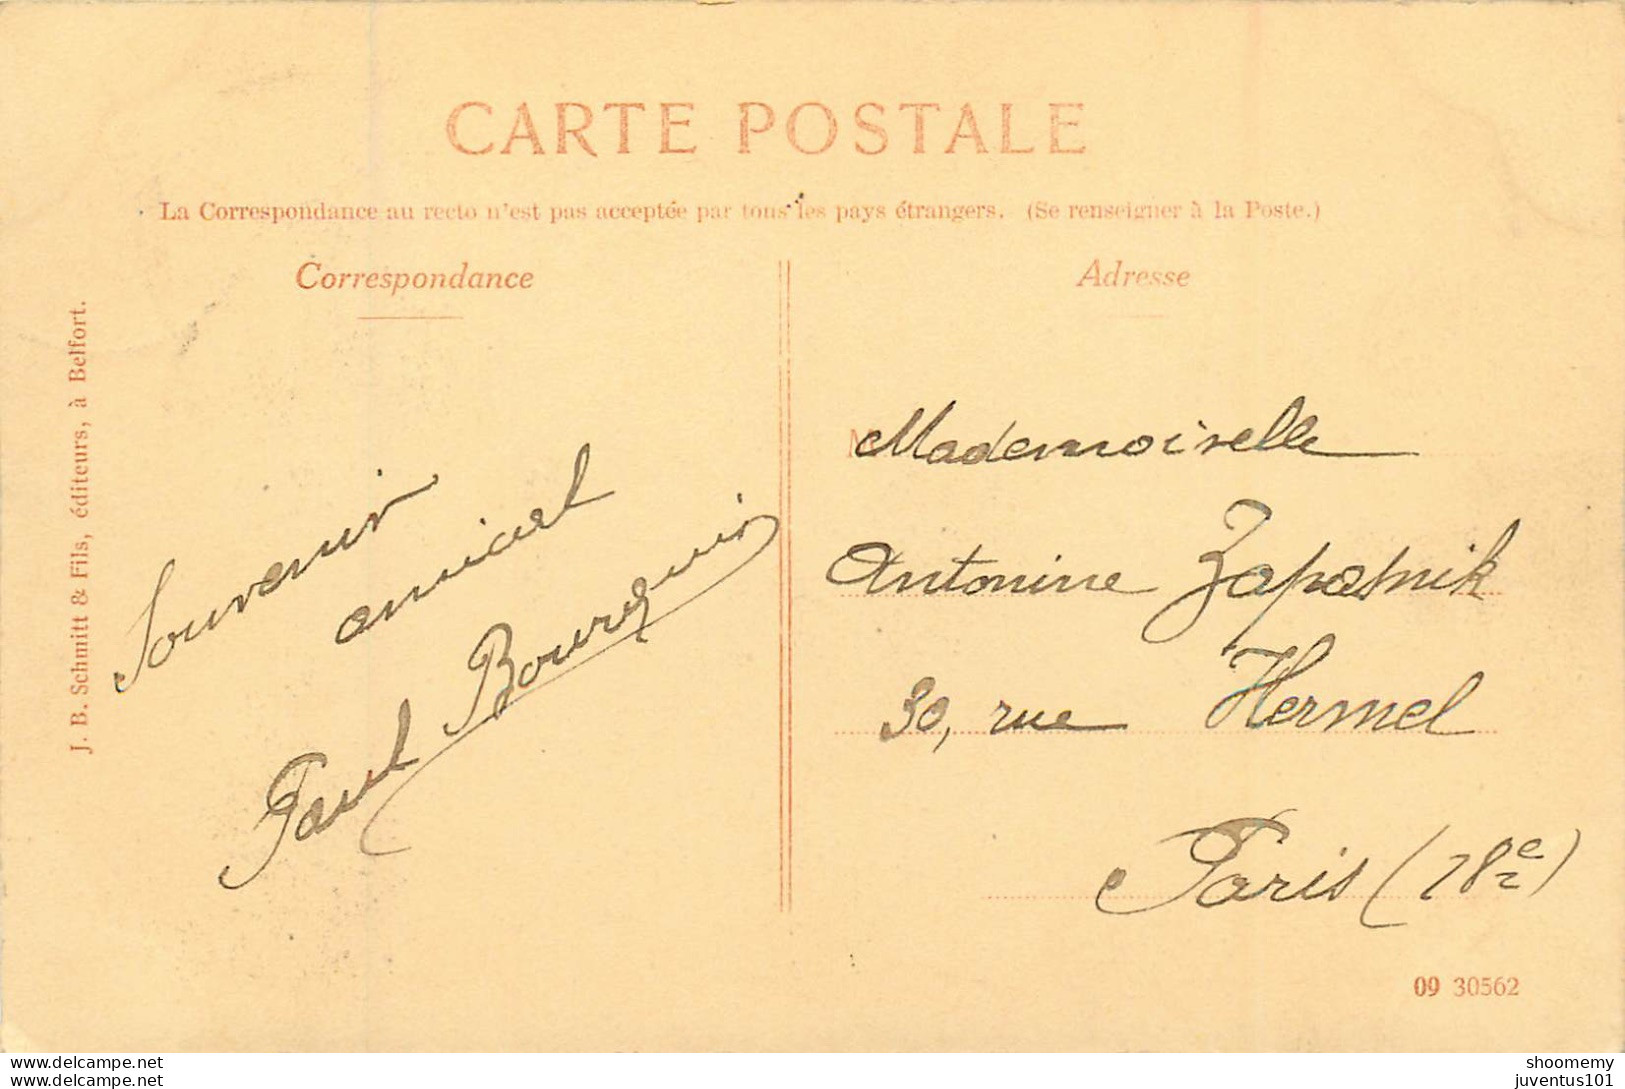 CARTE POSTALE
La Correspondance au recto n'est pas acceptée par tous les pays étrangers. (Se renseigner à la Poste.)
Correspondance
Souvenir
amical
Paul Bourquin
J. B. Schmitt & Fils, éditeurs, à Belfort.
Adresse
M
Mademoiselle
Antonine Zapasnik
30, rue Hermel
Paris (18e)
09 30562
https://www.delcampe.net
https://www.delcampe.net
shoomemy
juventus101